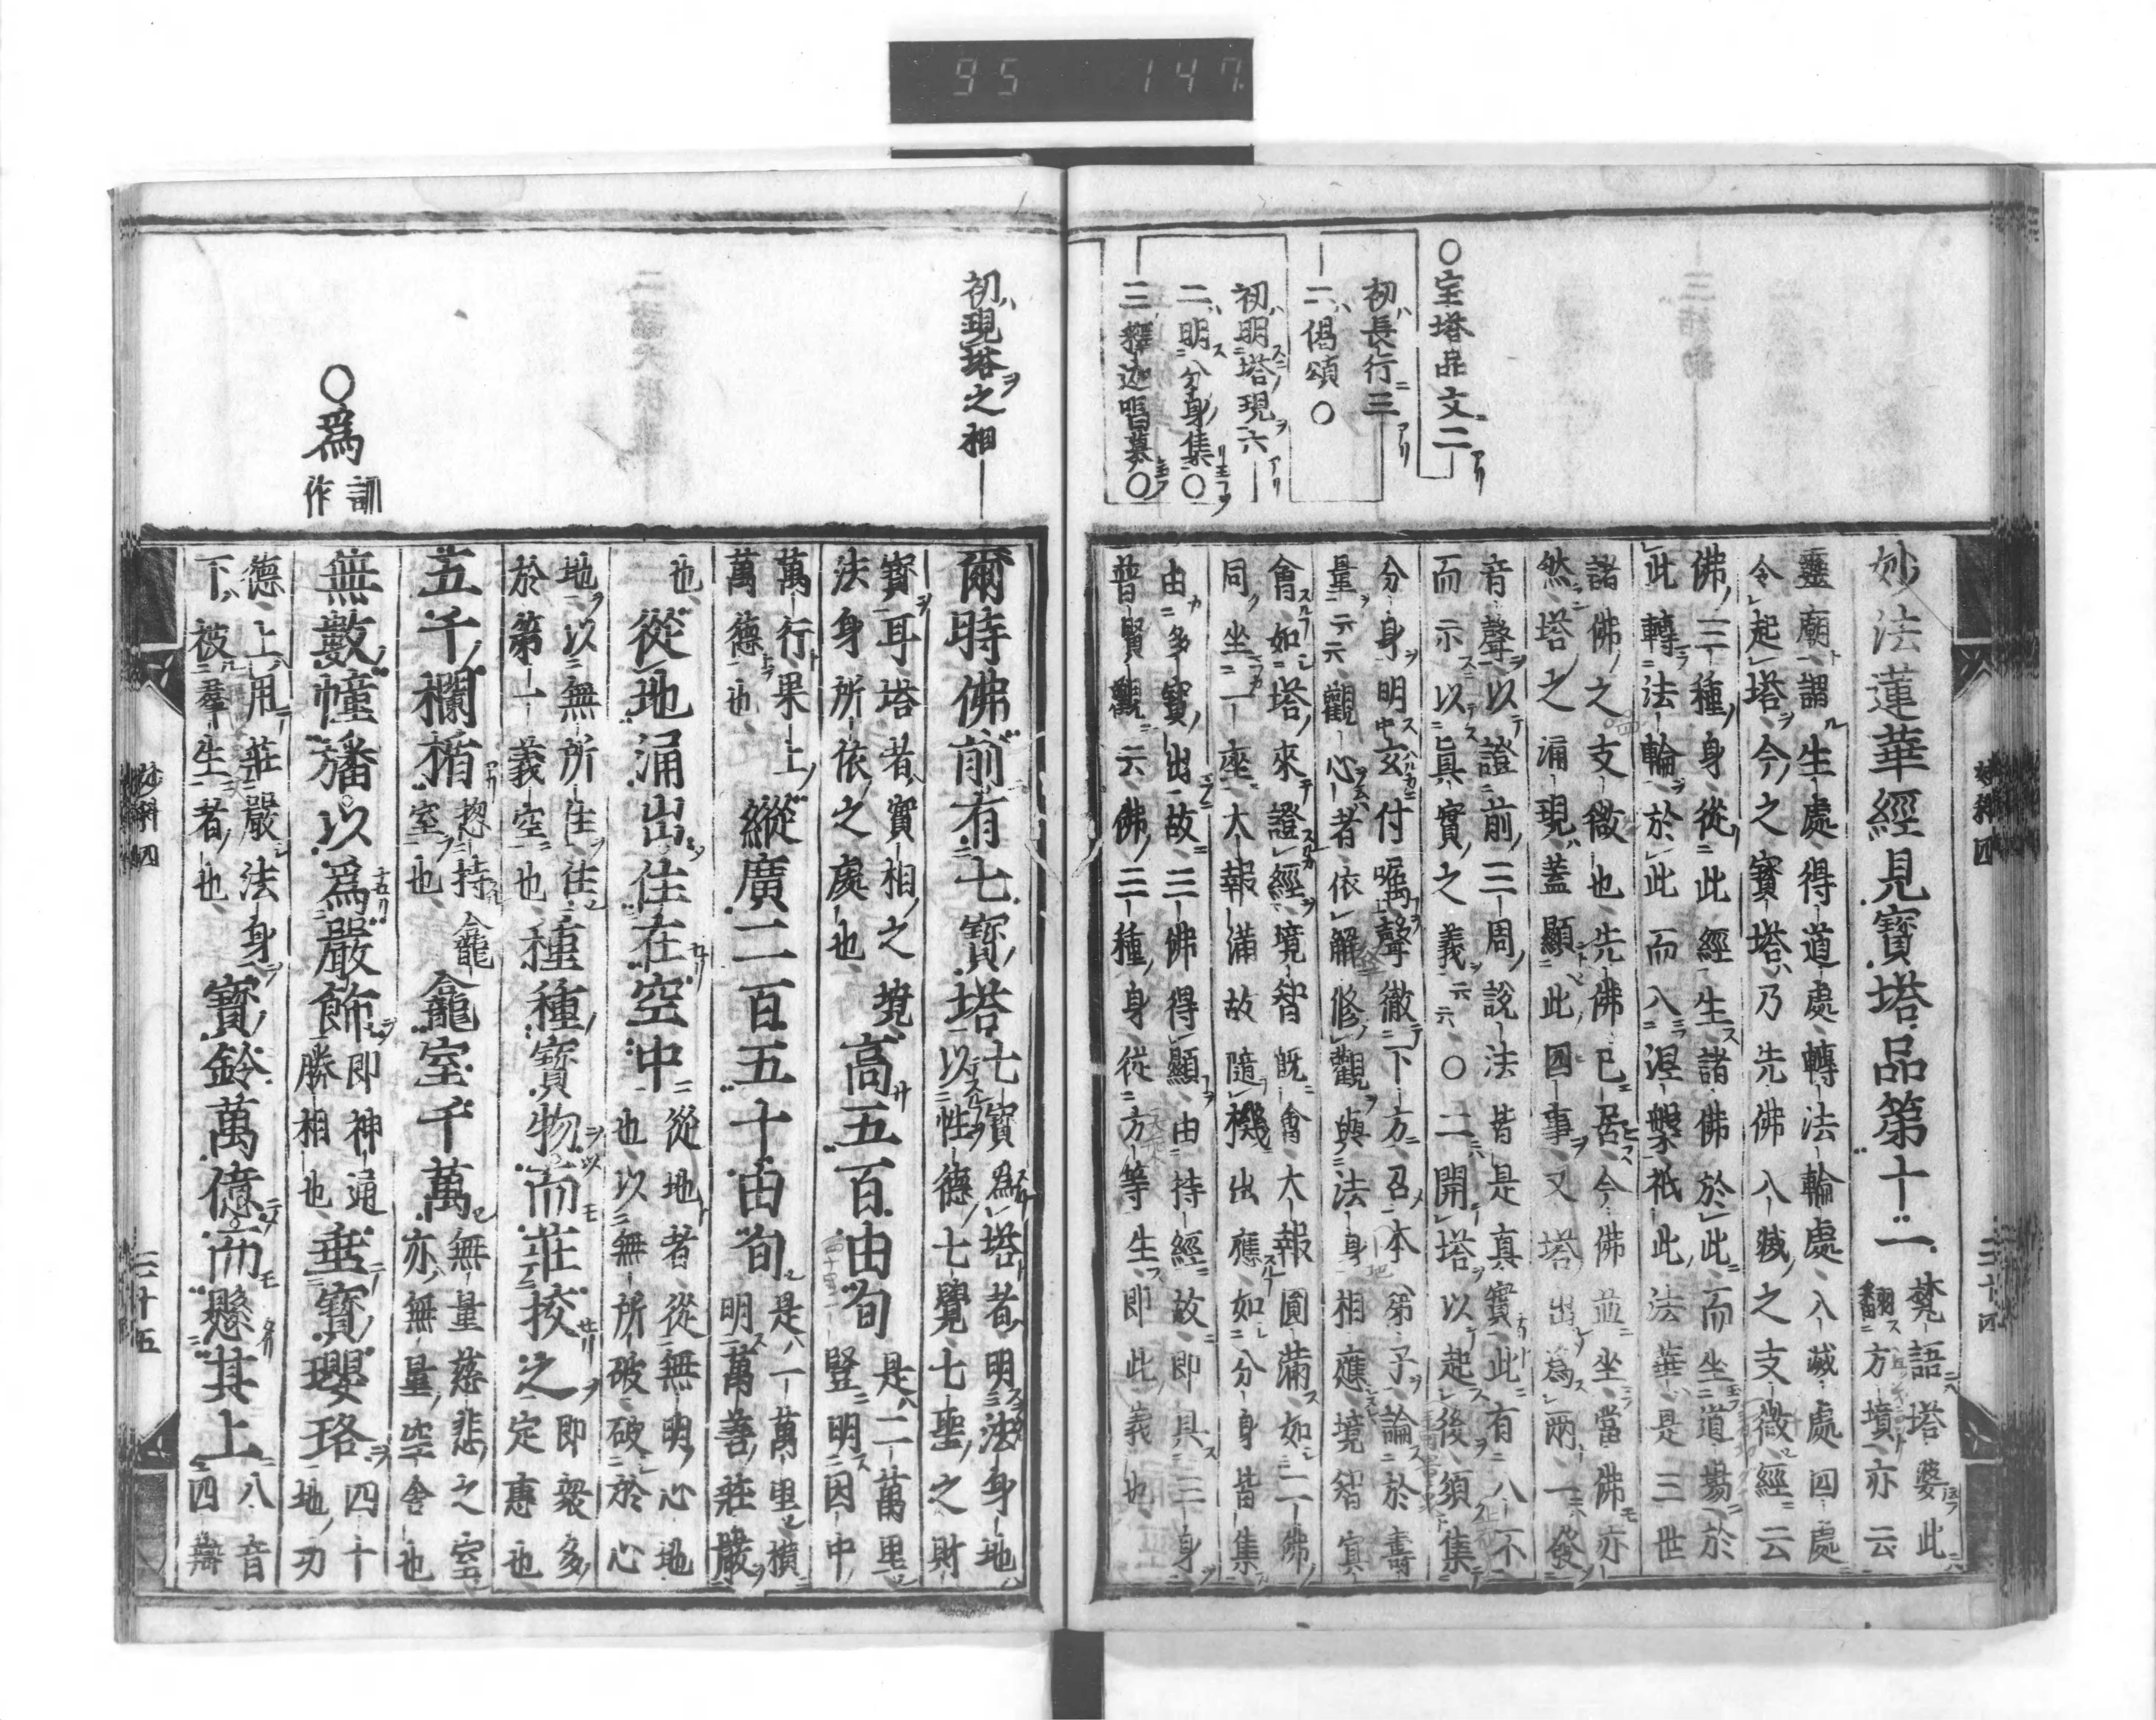 95 147
○宝塔品文二
初長行三
二偈頌○
初明塔現六
二明分身集○
三釋迦唱募○
妙法蓮華經見寶塔品第十一
梵語塔婆此
翻方墳亦云
靈廟謂生處得道處轉法輪處入滅處四處
令起塔今之寶塔乃先佛入滅之支徵經云
佛三種身從此經生諸佛於此而坐道場於
此轉法輪於此而入涅槃秖此法華是三世
諸佛之支徵也先佛已居今佛並坐當佛亦
然塔之涌現蓋顯此四事又塔出為兩一發
音聲以證前三周說法皆是真實此有八不
而示以真實之義云云○二開塔以起後須集
分身明玄付囑聲徹下方召本弟子論於壽
量云云觀心者依解修觀與法身相應境智
會如塔來證經境智既會大報圓滿如二佛
同坐一座大報滿故隨機出應如分身皆集
由多寶出故三佛得顯由持經故即具三身
普賢觀云佛三種身從方等生即此義也
妙科四
三十四
初現塔之相
○為訓作
爾時佛前有七寶塔
七寶為塔者明法身地
以性德七覺七聖之財
寶耳塔者實相之境
法身所依之處也
高五百由旬
是二萬里
豎明因中
萬行果上
萬德也
縱廣二百五十由旬
是一萬里橫
明萬善莊嚴
也
從地涌出住在空中
從地者從無明心地
也以無所破破於心
地以無所住住
於第一義空也
種種寶物而莊挍之
即衆多
定惠也
五千欄楯
惣持
室也
龕
龕室千萬
無量慈悲之室
亦無量空舍也
無數幢旛以為嚴飾
即神通
勝相也
垂寶瓔珞
四十
地功
德上用莊嚴法身
下被羣生者也
寶鈴萬億而懸其上
八音
四辯
妙科四
三十五